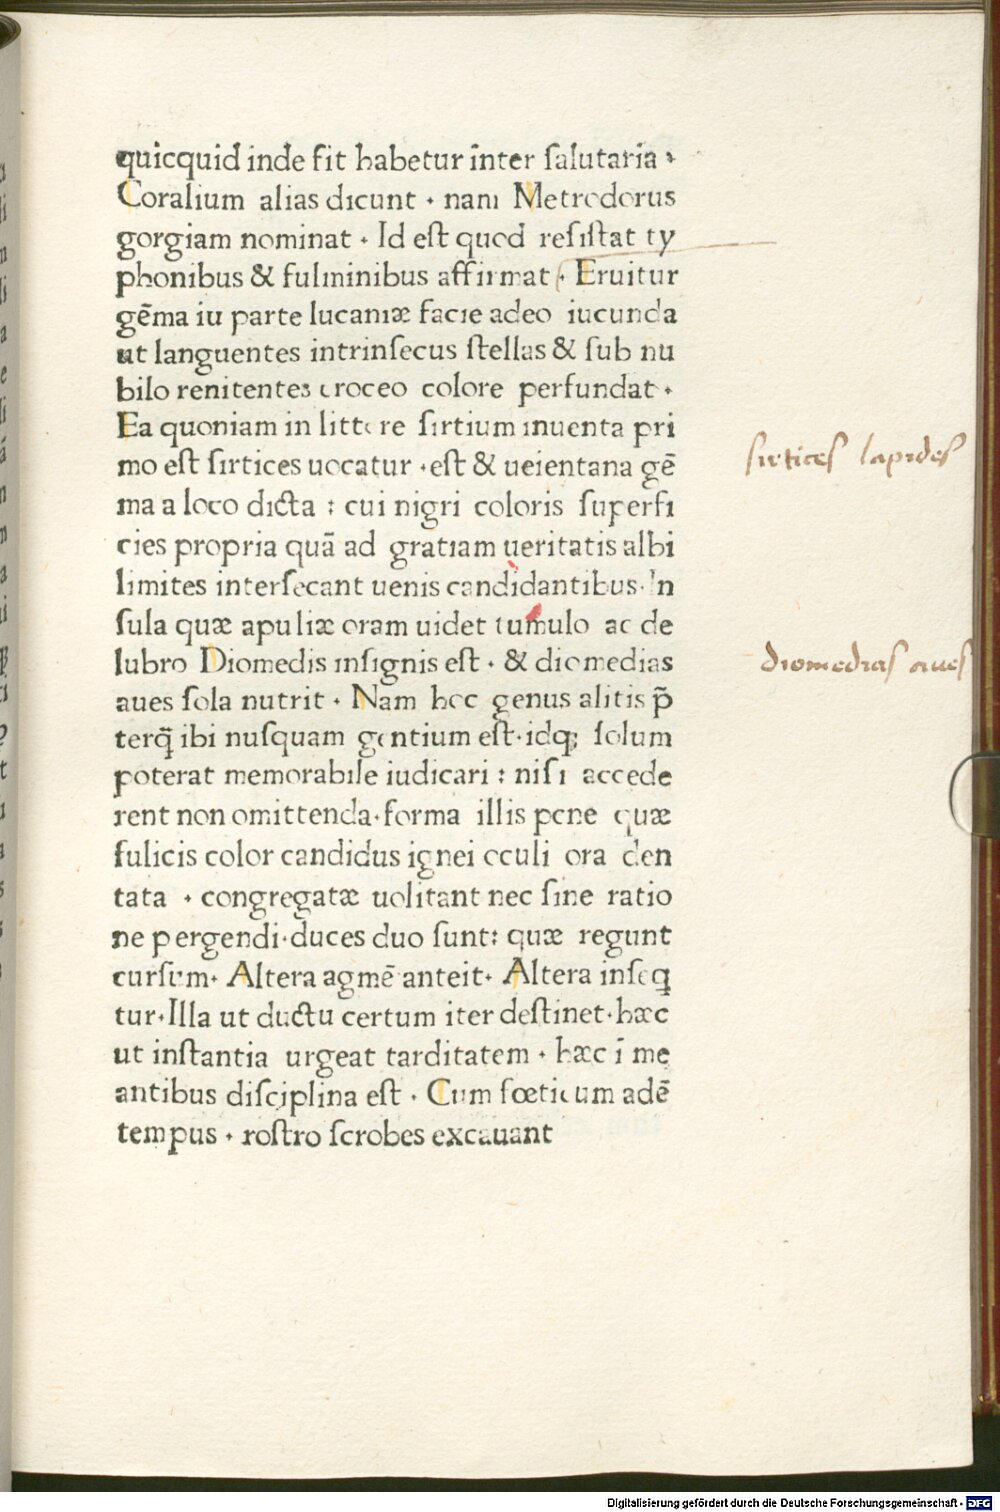 quicquid inde fit habetur inter ſalutaria ·
Coralium alias dicunt · nam Metrodorus
gorgiam nominat · Id eſt quod reſiſtat ty
phonibus & fulminibus affirmat · Eruitur
gēma iu parte lucaniæ facie adeo iucunda
ut languentes intrinſecus ſtellas & ſub nu
bilo renitentes croceo colore perfundat ·
Ea quoniam in littore ſirtium inuenta pri
mo eſt ſirtices uocatur · eſt & ueientana gē
ma a loco dicta : cui nigri coloris ſuperfi
cies propria quā ad gratiam ueritatis albi
limites interſecant uenis candidantibus · In
ſula quæ apuliæ oram uidet tumulo ac de
lubro Diomedis inſignis eſt · & diomedias
aues ſola nutrit · Nam hoc genus alitis p̄
terq̄ ibi nuſquam gentium eſt · idq; ſolum
poterat memorabile iudicari : niſi accede
rent non omittenda · forma illis pene quæ
fulicis color candidus ignei oculi ora den
tata · congregatæ uolitant nec ſine ratio
ne pergendi · duces duo ſunt : quæ regunt
curſum · Altera agmē anteit · Altera inſeq̄
tur · Illa ut ductu certum iter deſtinet · hæc
ut inſtantia urgeat tarditatem · hæc ī me
antibus diſciplina eſt · Cum fœticum adē
tempus · roſtro ſcrobes excauant
sirtices lapides
diomedias aues
Digitalisierung gefördert durch die Deutsche Forschungsgemeinschaft - DFG